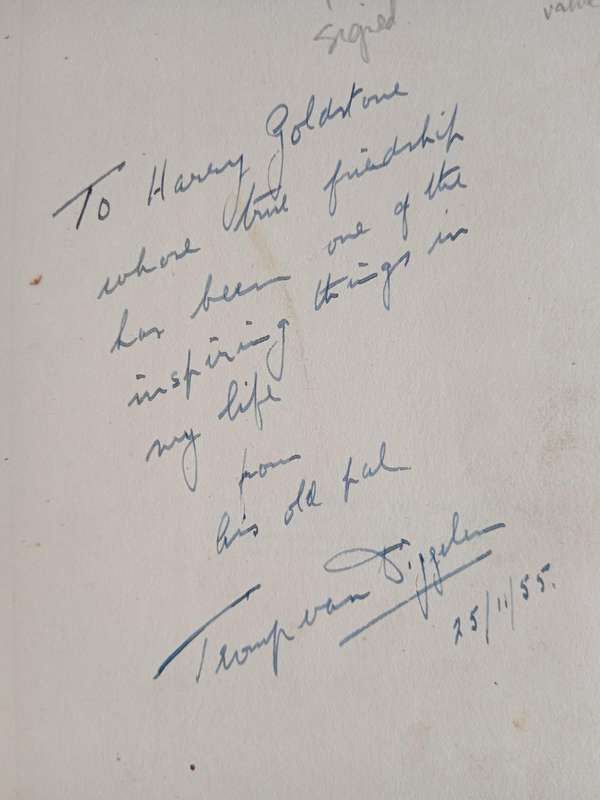 signed
value
To Harry Goldstone
whose true friendship
has been one of the
inspiring things in
my life
from
his old pal
Tromp van Diggelen
25/11/55.